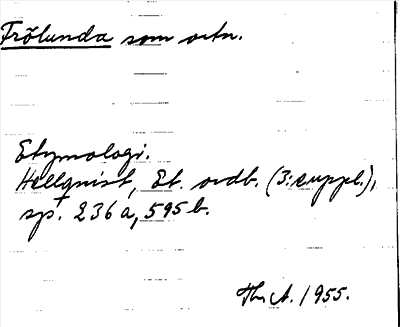 Frölunda som ortn.
Etymologi.
Hellquist, Et. ordb. (3:e uppl.),
sp. 236 a, 595 b.
Th. A. 1955.